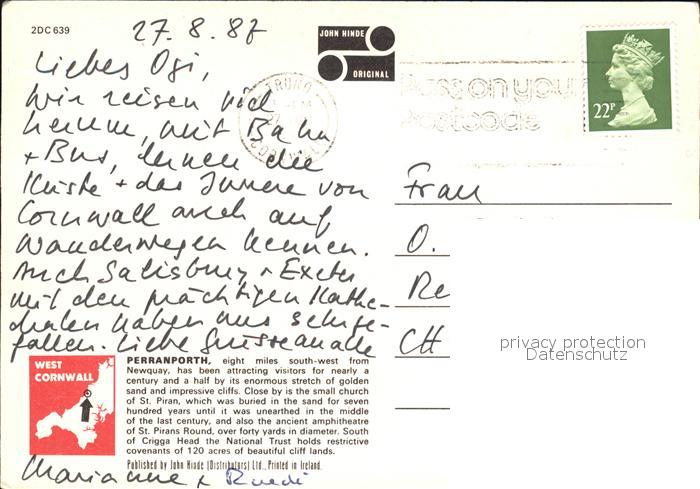 2DC 639
27.8.87
JOHN HINDE
ORIGINAL
Liebes Ogi,
wir reisen viel
herum, mit Bahn
+ Bus, lernen die
Küste + das Innere von
Cornwall auch auf
Wanderwegen kennen.
Auch Salisbury + Exeter
mit den prächtigen Kathe-
dralen haben uns sehr ge-
fallen. Liebe Grüsse an alle
Marianne + Ruedi
TRURO
Pass on your
postcode
22P
Frau
O.
Re
CH
privacy protection
Datenschutz
WEST
CORNWALL
PERRANPORTH, eight miles south-west from
Newquay, has been attracting visitors for nearly a
century and a half by its enormous stretch of golden
sand and impressive cliffs. Close by is the small church
of St. Piran, which was buried in the sand for seven
hundred years until it was unearthed in the middle
of the last century, and also the ancient amphitheatre
of St. Pirans Round, over forty yards in diameter. South
of Crigga Head the National Trust holds restrictive
covenants of 120 acres of beautiful cliff lands.
Published by John Hinde (Distributors) Ltd., Printed in Ireland.